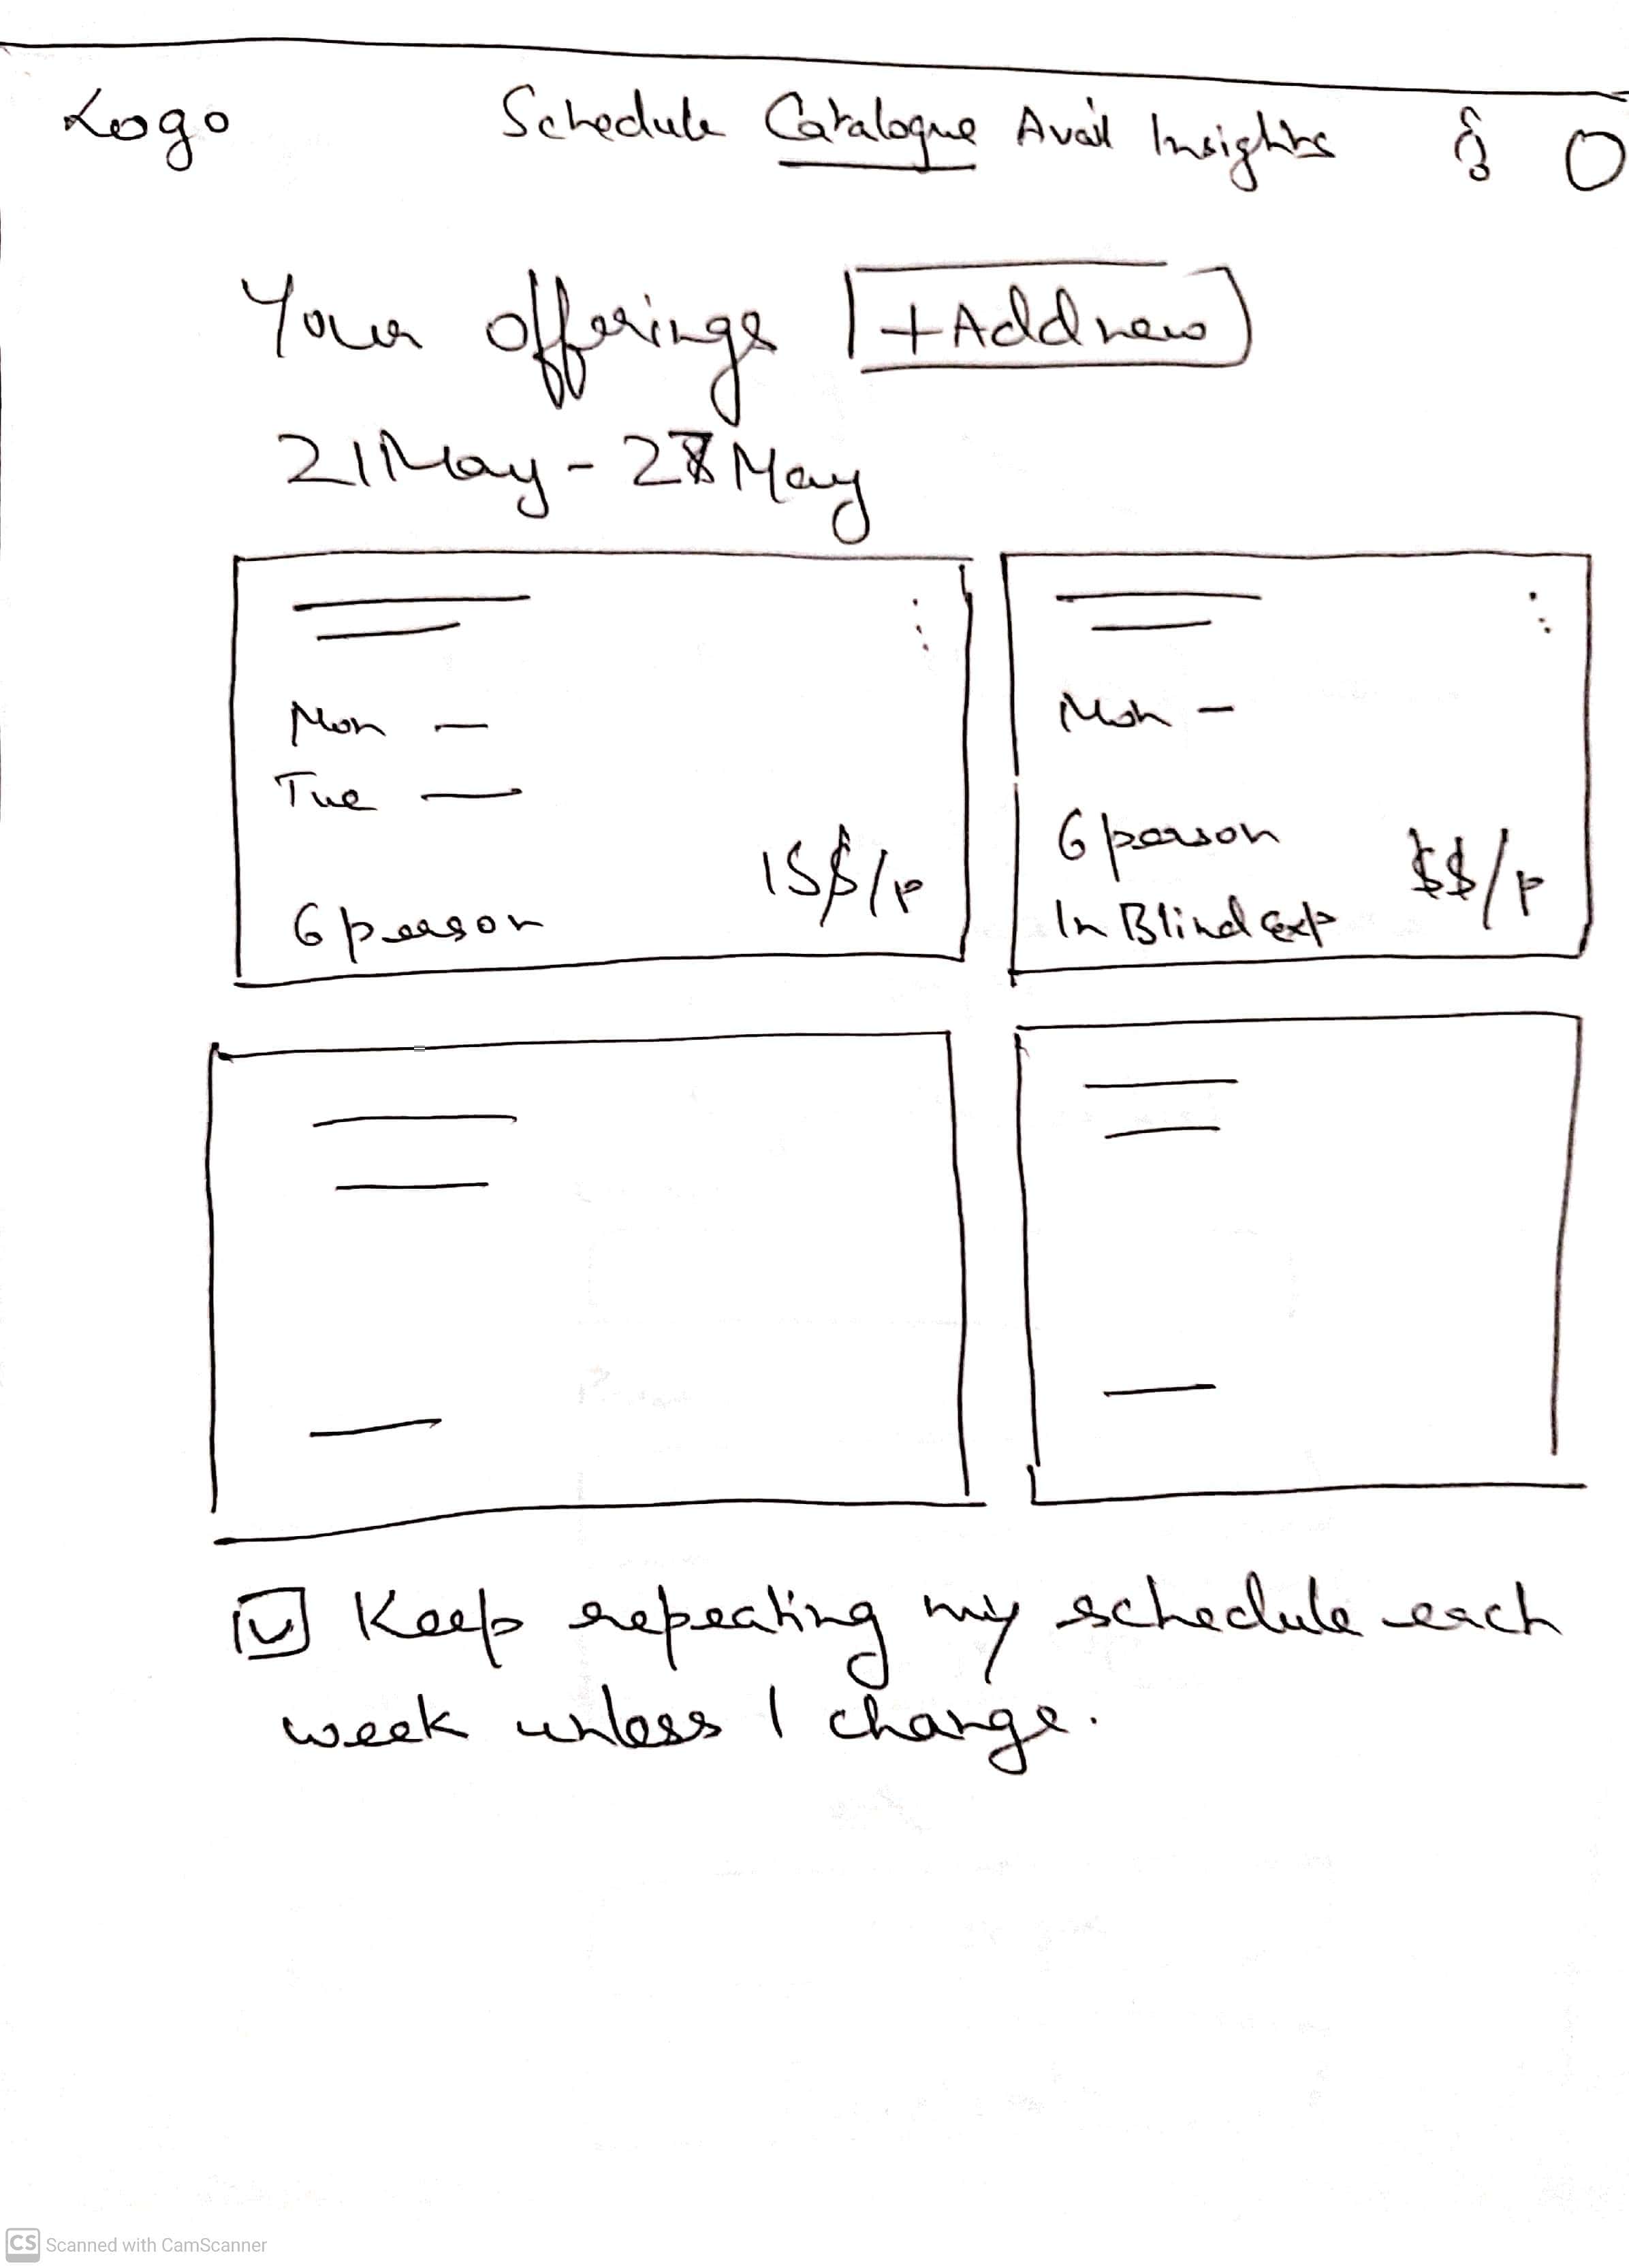 Logo Schedule Catalogue Avail Insights
Your offerings +Add new
21 May - 28 May
Mon -
Tue -
6 person 15$/p
Mon -
6 person
In Blind exp $$/p
Keep repeating my schedule each
week unless I change.
CS Scanned with CamScanner